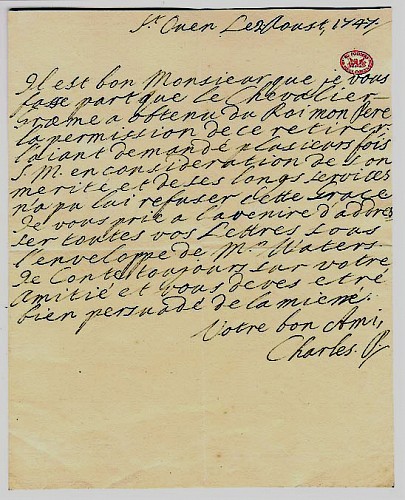 St. Ouen Le 2 Aoust, 1747,
Il est bon Monsieur que je vous
fasse part que le Chevalier
græme a obtenu du Roi mon Pere
la permission de ce retirer,
l'aiant demandé plusieurs fois
S. M. en consideration de son
merite, et de ses longs services
n'a pu lui refuser cette Grace
Je vous prie a l'avenire d'addres
ser toutes vos Lettres sous
l'enveloppe de Mr. Waters.
Je Conte toujours sur votre
Amitié et vous deves etre
bien persuadé de la miene.
Votre bon Ami,
Charles P.